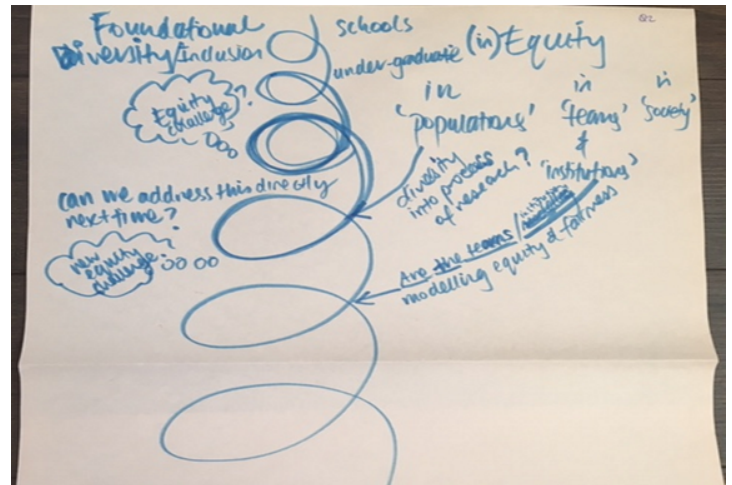 Q2
Foundational
Diversity/inclusion
schools
under-graduate
(in)Equity
in
'populations'
in
'teams'
&
'institutions'
in
'society'
Equity
challenge?
diversity
into process
of research?
can we address this directly
next time?
new
equity
challenge?
Are the teams/institutions
modelling equity & fairness